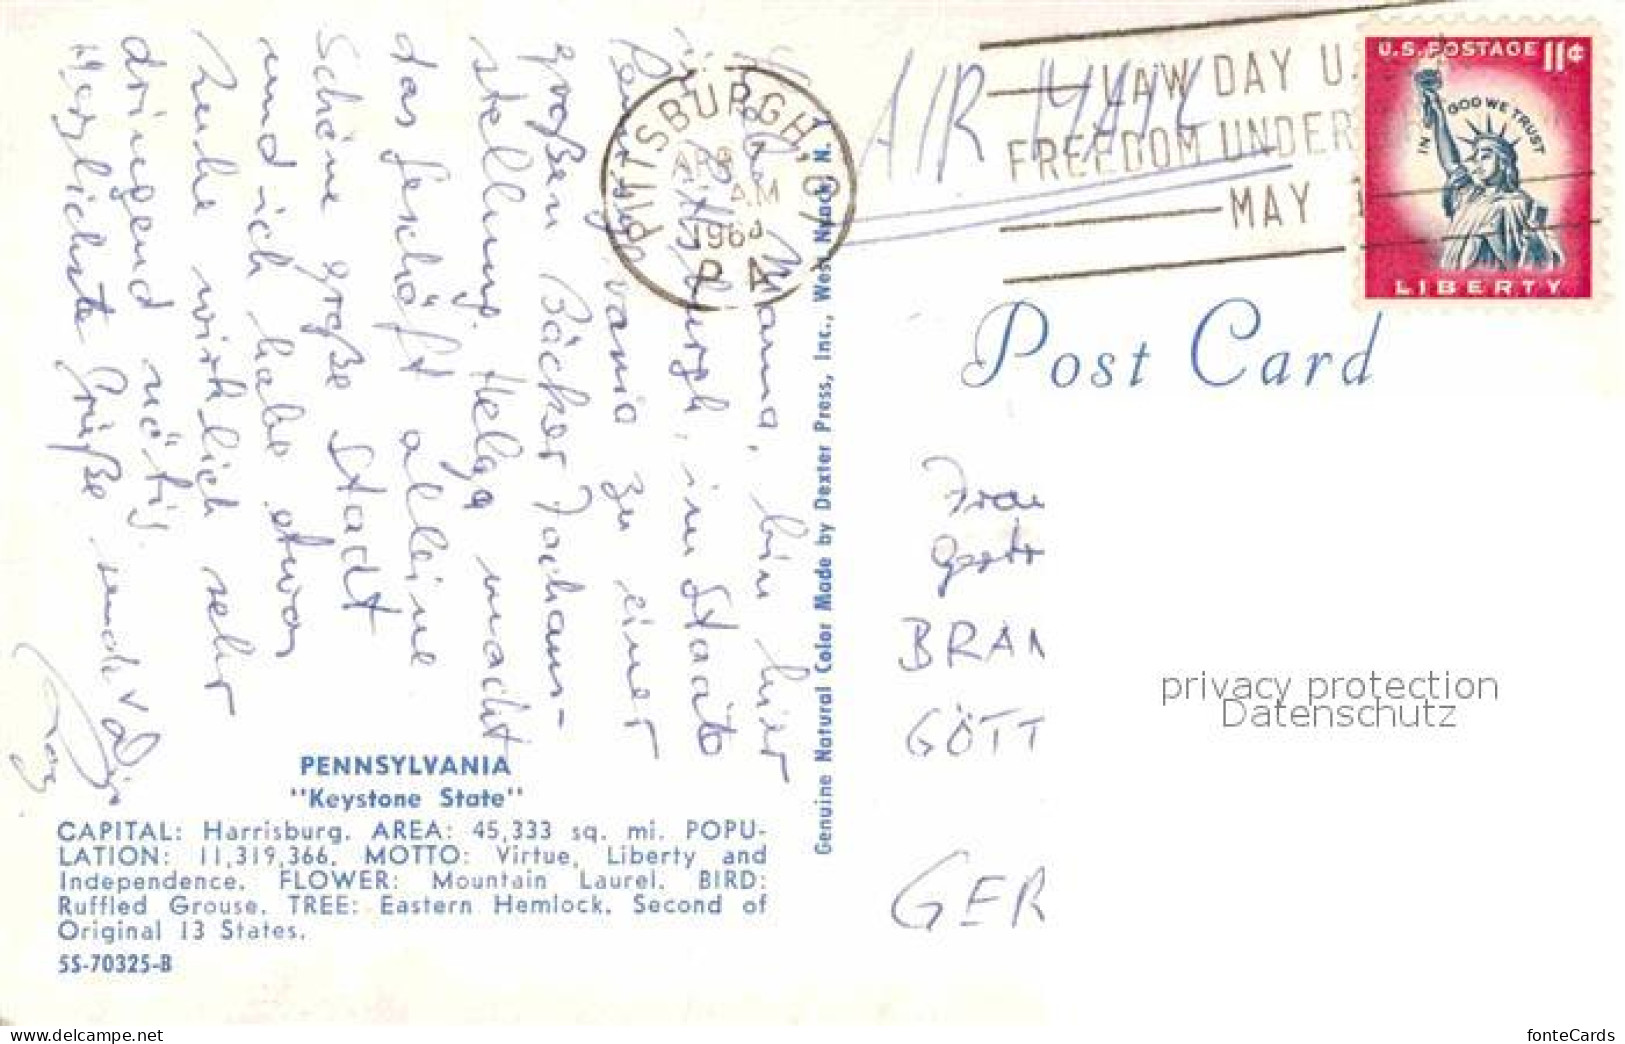 Mama, bin hier
in Pittsburgh, im Staate
Pennsylvania zu einer
großen Bäcker Fachaus-
stellung. Helga macht
das Geschäft alleine
Schöne große Stadt
und ich habe etwas
Ruhe wirklich sehr
dringend nötig.
Herzlichste Grüße sendet
PENNSYLVANIA
"Keystone State"
CAPITAL: Harrisburg. AREA: 45,333 sq. mi. POPU-
LATION: 11,319,366. MOTTO: Virtue, Liberty and
Independence. FLOWER: Mountain Laurel. BIRD:
Ruffled Grouse. TREE: Eastern Hemlock. Second of
Original 13 States.
5S-70325-B
Genuine Natural Color Made by Dexter Press, Inc., West Nyack, N.
PITTSBURGH,
APR
AM
196
PA
AIR MAIL
LAW DAY U.
FREEDOM UNDER
MAY
U.S. POSTAGE 11¢
IN GOD WE TRUST
LIBERTY
Post Card
Frau
BRAN
GÖTT
GER
privacy protection
Datenschutz
www.ansichtskarten-center.de
fonteCards